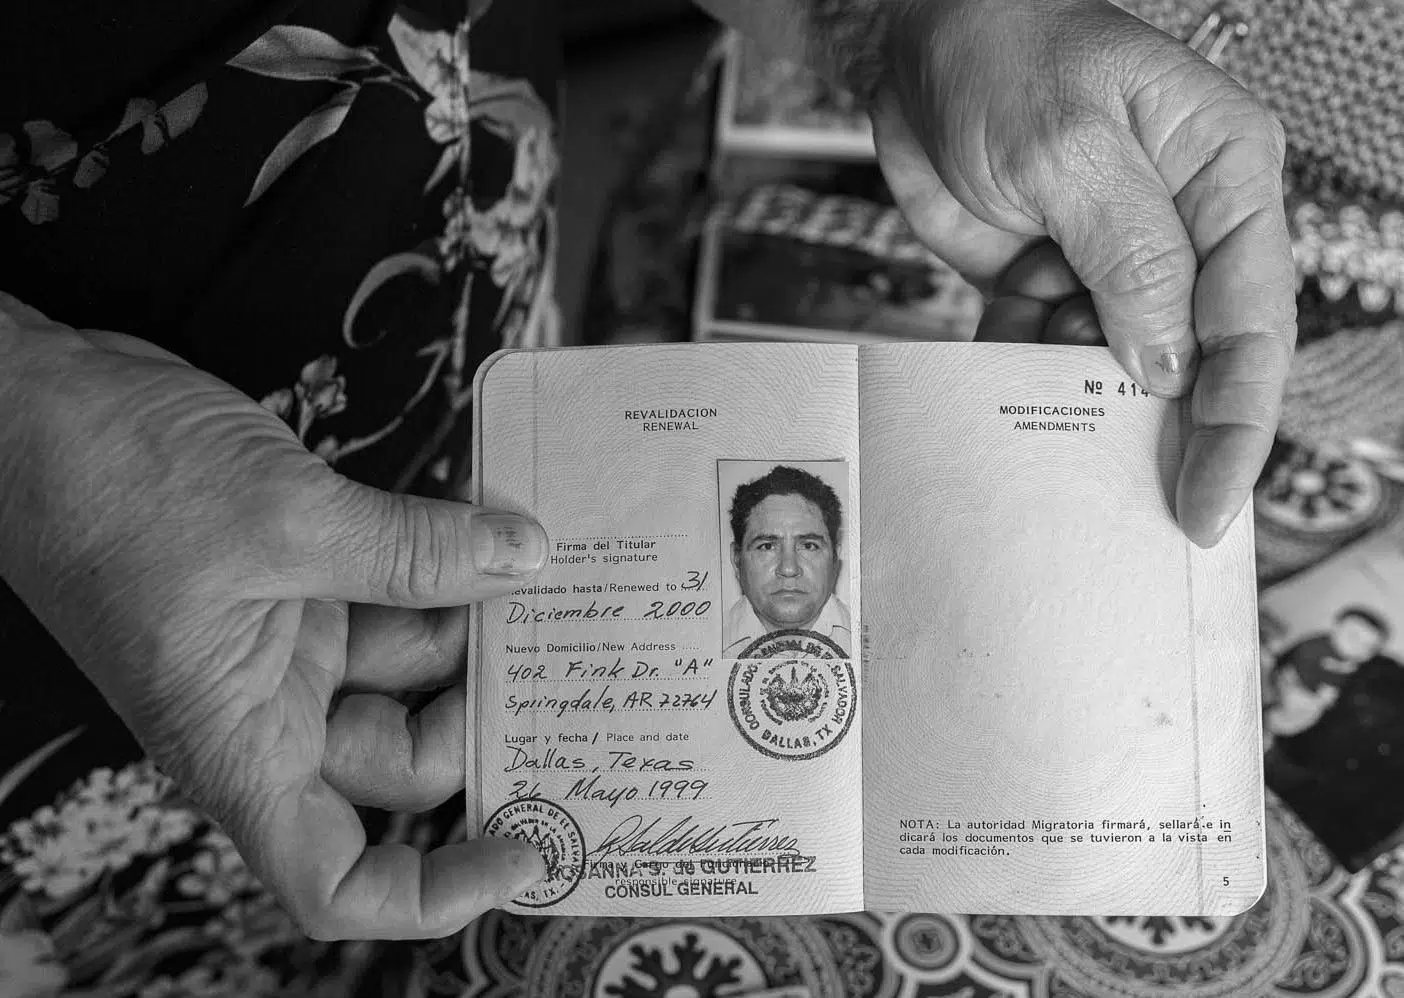 REVALIDACION
RENEWAL
Firma del Titular
Holder's signature
evalidado hasta/Renewed to 31
Diciembre 2000
Nuevo Domicilio/New Address
402 Fink Dr. "A"
Springdale, AR 72764
Lugar y fecha / Place and date
Dallas, Texas
26 Mayo 1999
CONSULADO GENERAL DE EL SALVADOR
DALLAS, TX
GENERAL DE EL SALVA
AS, TX.
Firma y Cargo del
responsible signature
SANNA S. de GUTIERREZ
CONSUL GENERAL
Nº 414
MODIFICACIONES
AMENDMENTS
NOTA: La autoridad Migratoria firmará, sellará e in
dicará los documentos que se tuvieron a la vista en
cada modificación.
5